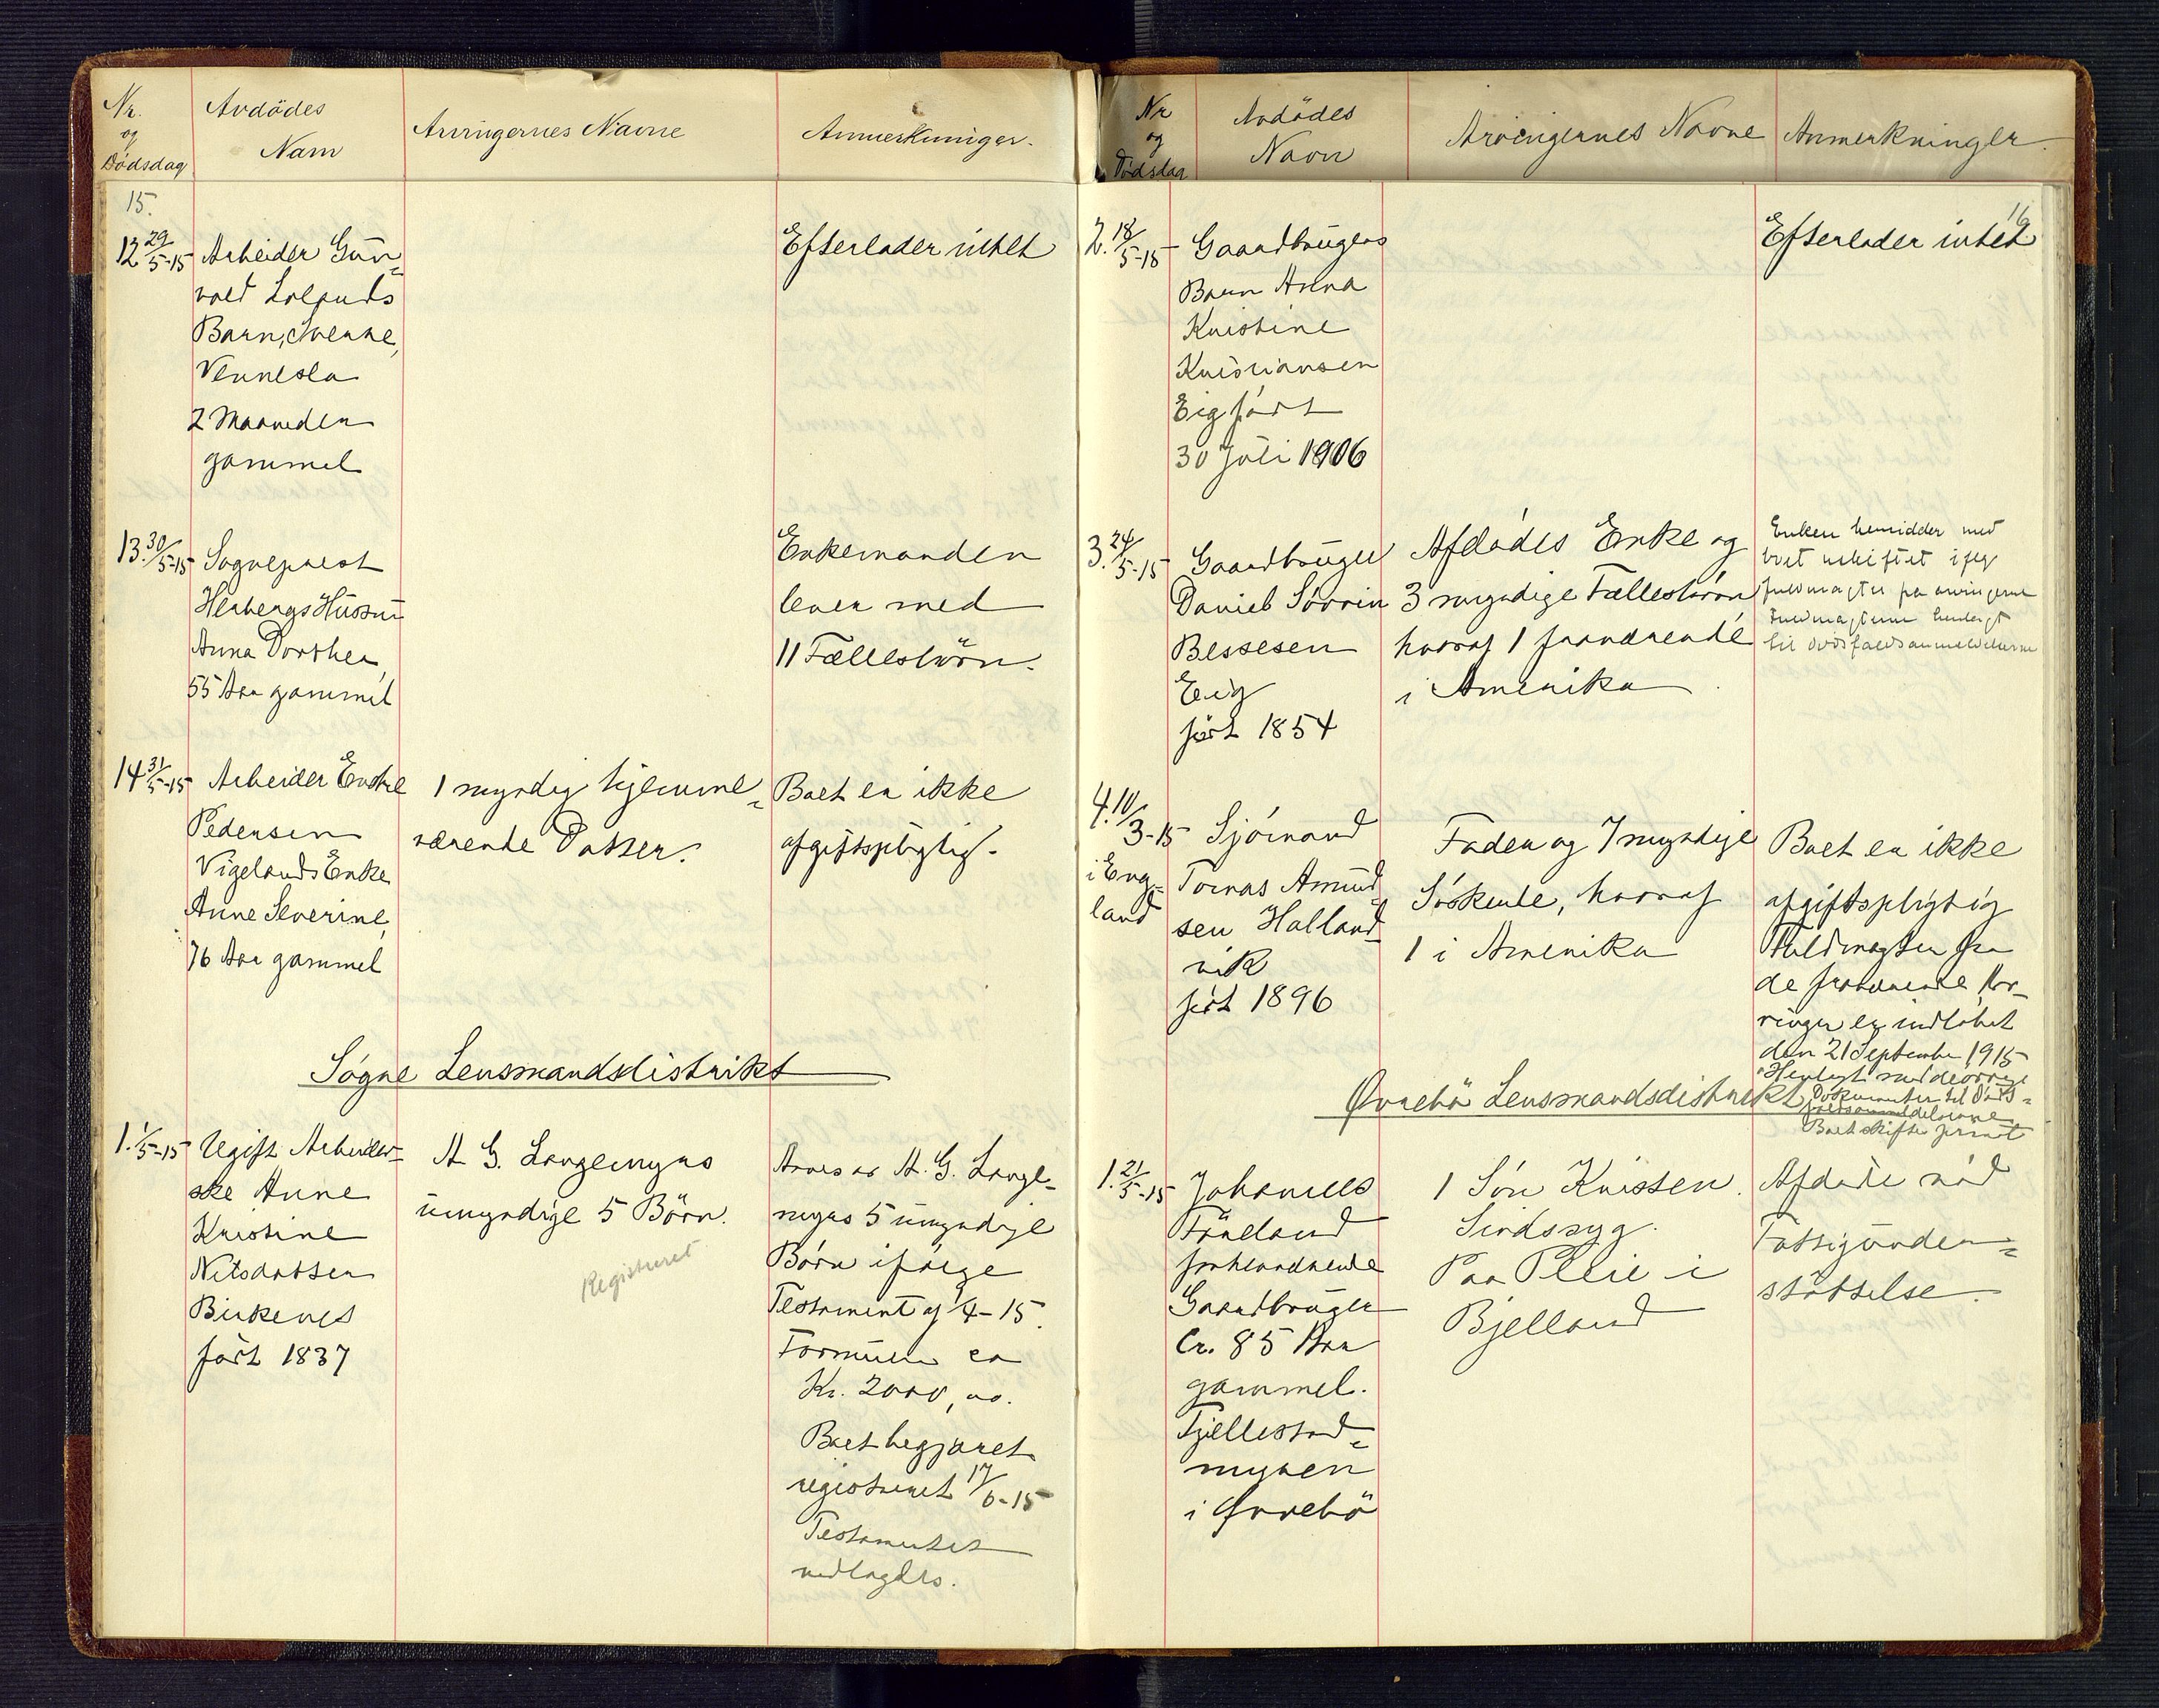 Nr.
og
Dödsdag
Avdödes
Navn
Arvingernes Navne
Anmerkninger.
15.
12 29/5-15
Arbeider Gun-
vald Lolands
Barn, Sverre,
Vennesla
2 Maaneder
gammel
Efterlader intet
13. 30/5-15
Sogneprest
Herbergs Hustru
Anna Dorthea,
55 Aar gammel
Enkemanden
lever med
11 Fællesbörn.
14 31/5-15
Arbeider Endre
Pedersen
Vigelands Enke
Anne Severine,
76 Aar gammel
1 myndig hjemme-
værende Datter.
Boet er ikke
afgiftspligtig.
Søgne Lensmandsdistrikt
1. 1/5-15
Ugift Arbeider-
ske Anne
Kristine
Nilsdatter
Birkenes
født 1837
A G. Langemyrs
umyndige 5 Børn.
Registreret
Arves av A. G. Lange-
myrs 5 umyndige
Børn ifølge
Testament af 1/4-15.
Formuen er
Kr. 2000,00.
Boet begjæret
registreret 17/6-15
Testamentet
vedlagdes.
Nr
og
Dödsdag
Avdödes
Navn
Arvingernes Navne
Anmerkninger.
16
2. 18/5-15
Gaardbrugers
Barn Anna
Kristine
Kristiansen
Eig født
30 Juli 1906
Efterlader intet
3. 24/5-15
Gaardbruger
Daniel Severin
Bessesen
Eig
født 1854
Afdødes Enke og
3 myndige Fællesbørn
hvoraf 1 fraværende
i Amerika
Enken hensidder med
boet uskiftet
Fuldmagter fra arvingerne
Fuldmagterne henlagt
til dødsfaldsanmeldelserne
4. 10/3-15
i Eng-
land
Sjømand
Tomas Amund-
sen Halland-
vik
født 1896
Fader og 7 myndige
Søskende, hvoraf
1 i Amerika
Boet er ikke
afgiftspligtig
Fuldmagter fra
de fraværende Ar-
vinger er indløbet
den 21 September 1915
Henlagt med de øvrige
Dokumenter til Døds-
faldsanmeldelserne
Boet skiftes privat
Øvrebö Lensmandsdistrikt
1. 21/5-15
Johannes
Frøland
forhenværende
Gaardbruger
Cr. 85 Aar
gammel.
Fjellestad-
myren
i Øvrebö
1 Søn Kristen.
Sindssyg.
Paa Pleie i
Bjelland
Afdøde nød
Fattigunder-
støttelse.